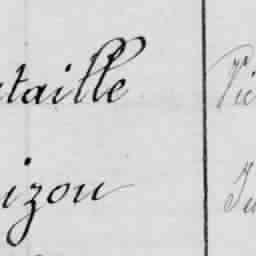 taille Vic
izou Ju